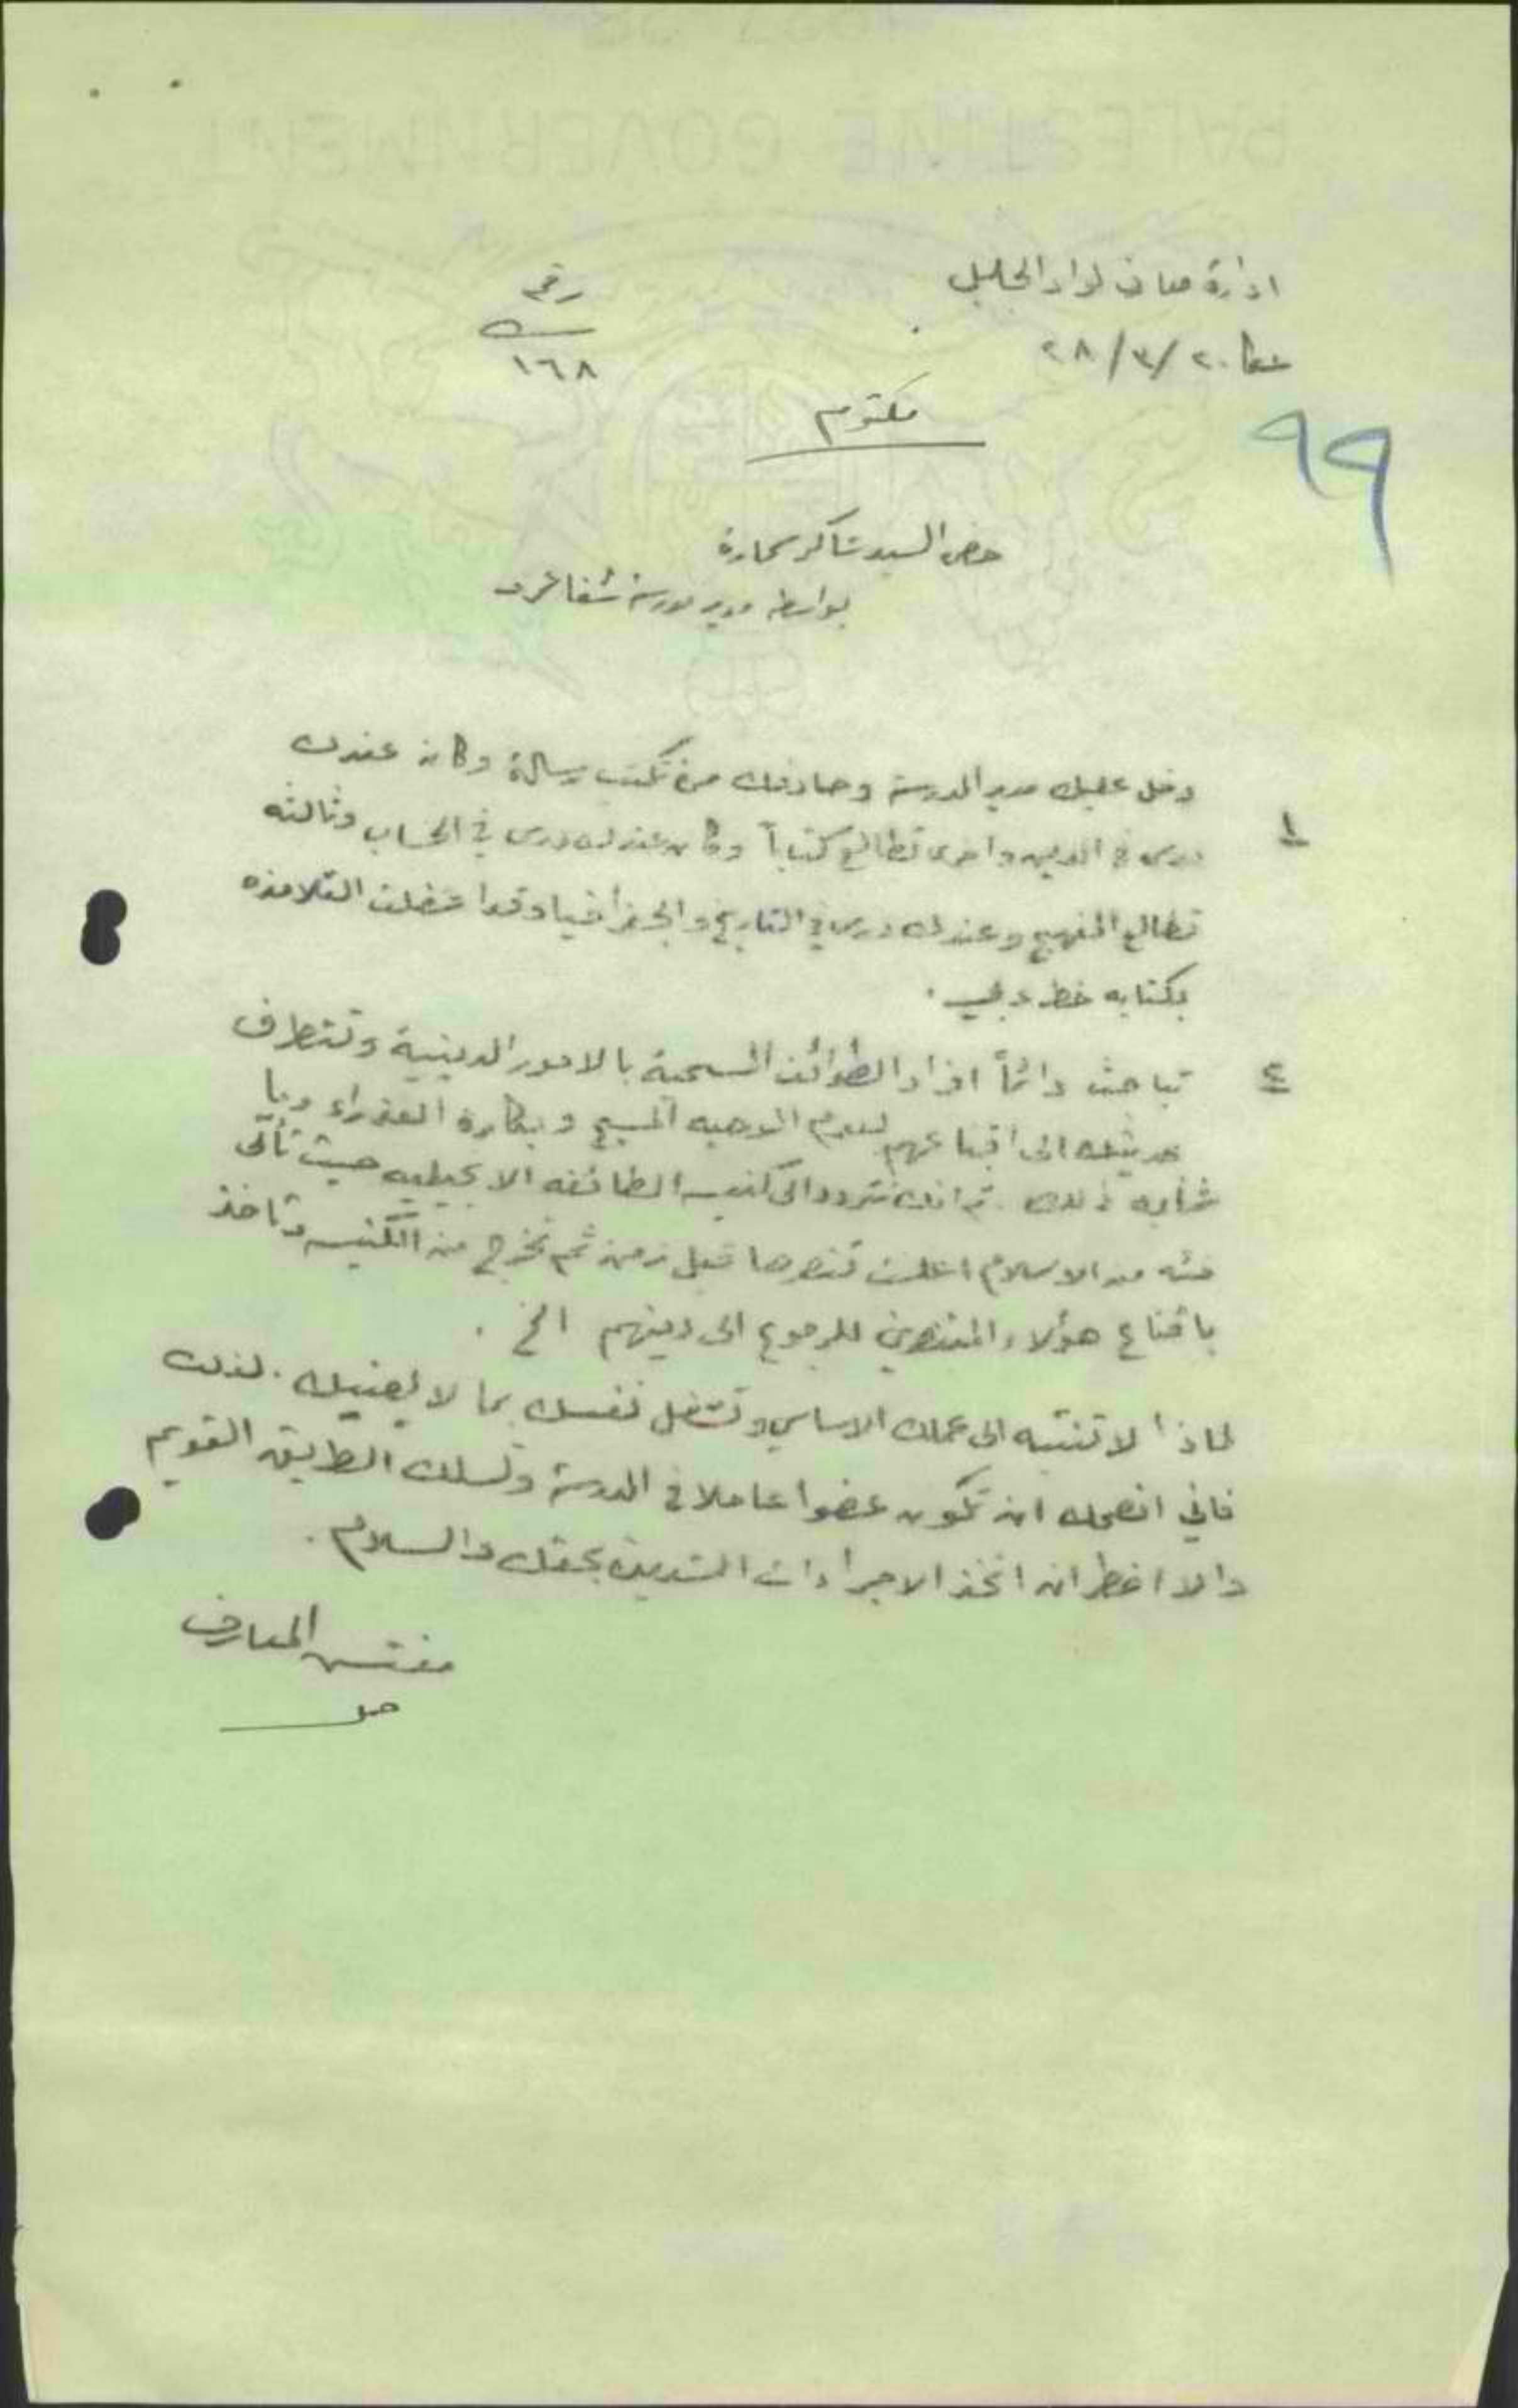 ادارة معارف لواء الجليل
عكا ٢٠/٣/٢٨
رقم
س
١٦٨
مكتوم
٩٩
حضرة السيد شاكر
بواسطة مدير مدرسة شفاعمرو
١ دخل عليك مدير المدرسة وصادفك مرة تكتب رسالة وكان عندك
درس في الدين واخرى تطالع كتاباً وكان عندك درس في الحساب وثالثه
تطالع المنهج وعندك درس في التاريخ والجغرافيا وقد اشغلت التلامذه
بكتابه خط عربي .
٢ تباحث دائماً افراد الطوائف المسحية بالامور الدينية وتتطرف
بحديثك الى اقناعهم لعدم الوهيه المسيح وبكارة العذراء وما
شابه ذلك . ثم انك تتردد الى كنيسه الطائفه الانجيليه حيث تأتى
فئه من الاسلام اعلنت تنصرها قبل زمن ثم تخرج من الكنيسه وتاخذ
باقناع هؤلاء المتنصرين للرجوع الى دينهم الخ .
لماذا لا تنتبه الى عملك الاساسي وتشغل نفسك بما لا يعنيك . لذلك
فاني انصحك ان تكون عضوا عاملا في المدرسة وتسلك الطريق القويم
والا اضطر ان اتخذ الاجراءات الشديدة بحقك والسلام .
مفتش المعارف